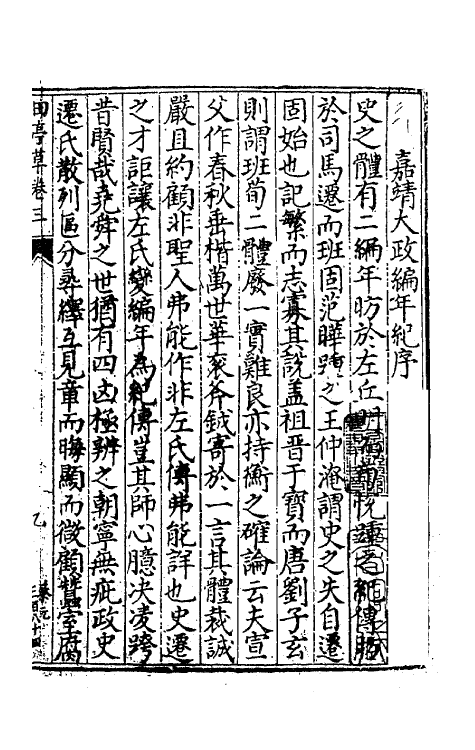 嘉靖大政編年紀序
史之體有二編年昉於左丘明荀悅踵之紀傳昉
於司馬遷而班固范曄踵之王仲淹謂史之失自遷
固始也記繁而志寡其說盖祖晋于寶而唐劉子玄
則謂班荀二體廢一實難良亦持衡之確論云夫宣
父作春秋垂楷萬世華衮斧鉞寄於一言其體裁誠
嚴且約顧非聖人弗能作非左氏傳弗能詳也史遷
之才詎讓左氏變編年為紀傳豈其師心臆决凌跨
昔賢哉堯舜之世猶有四凶極辨之朝寧無疵政史
遷氏散列區分尋繹互見章而晦顯而微顧
田亭草卷三